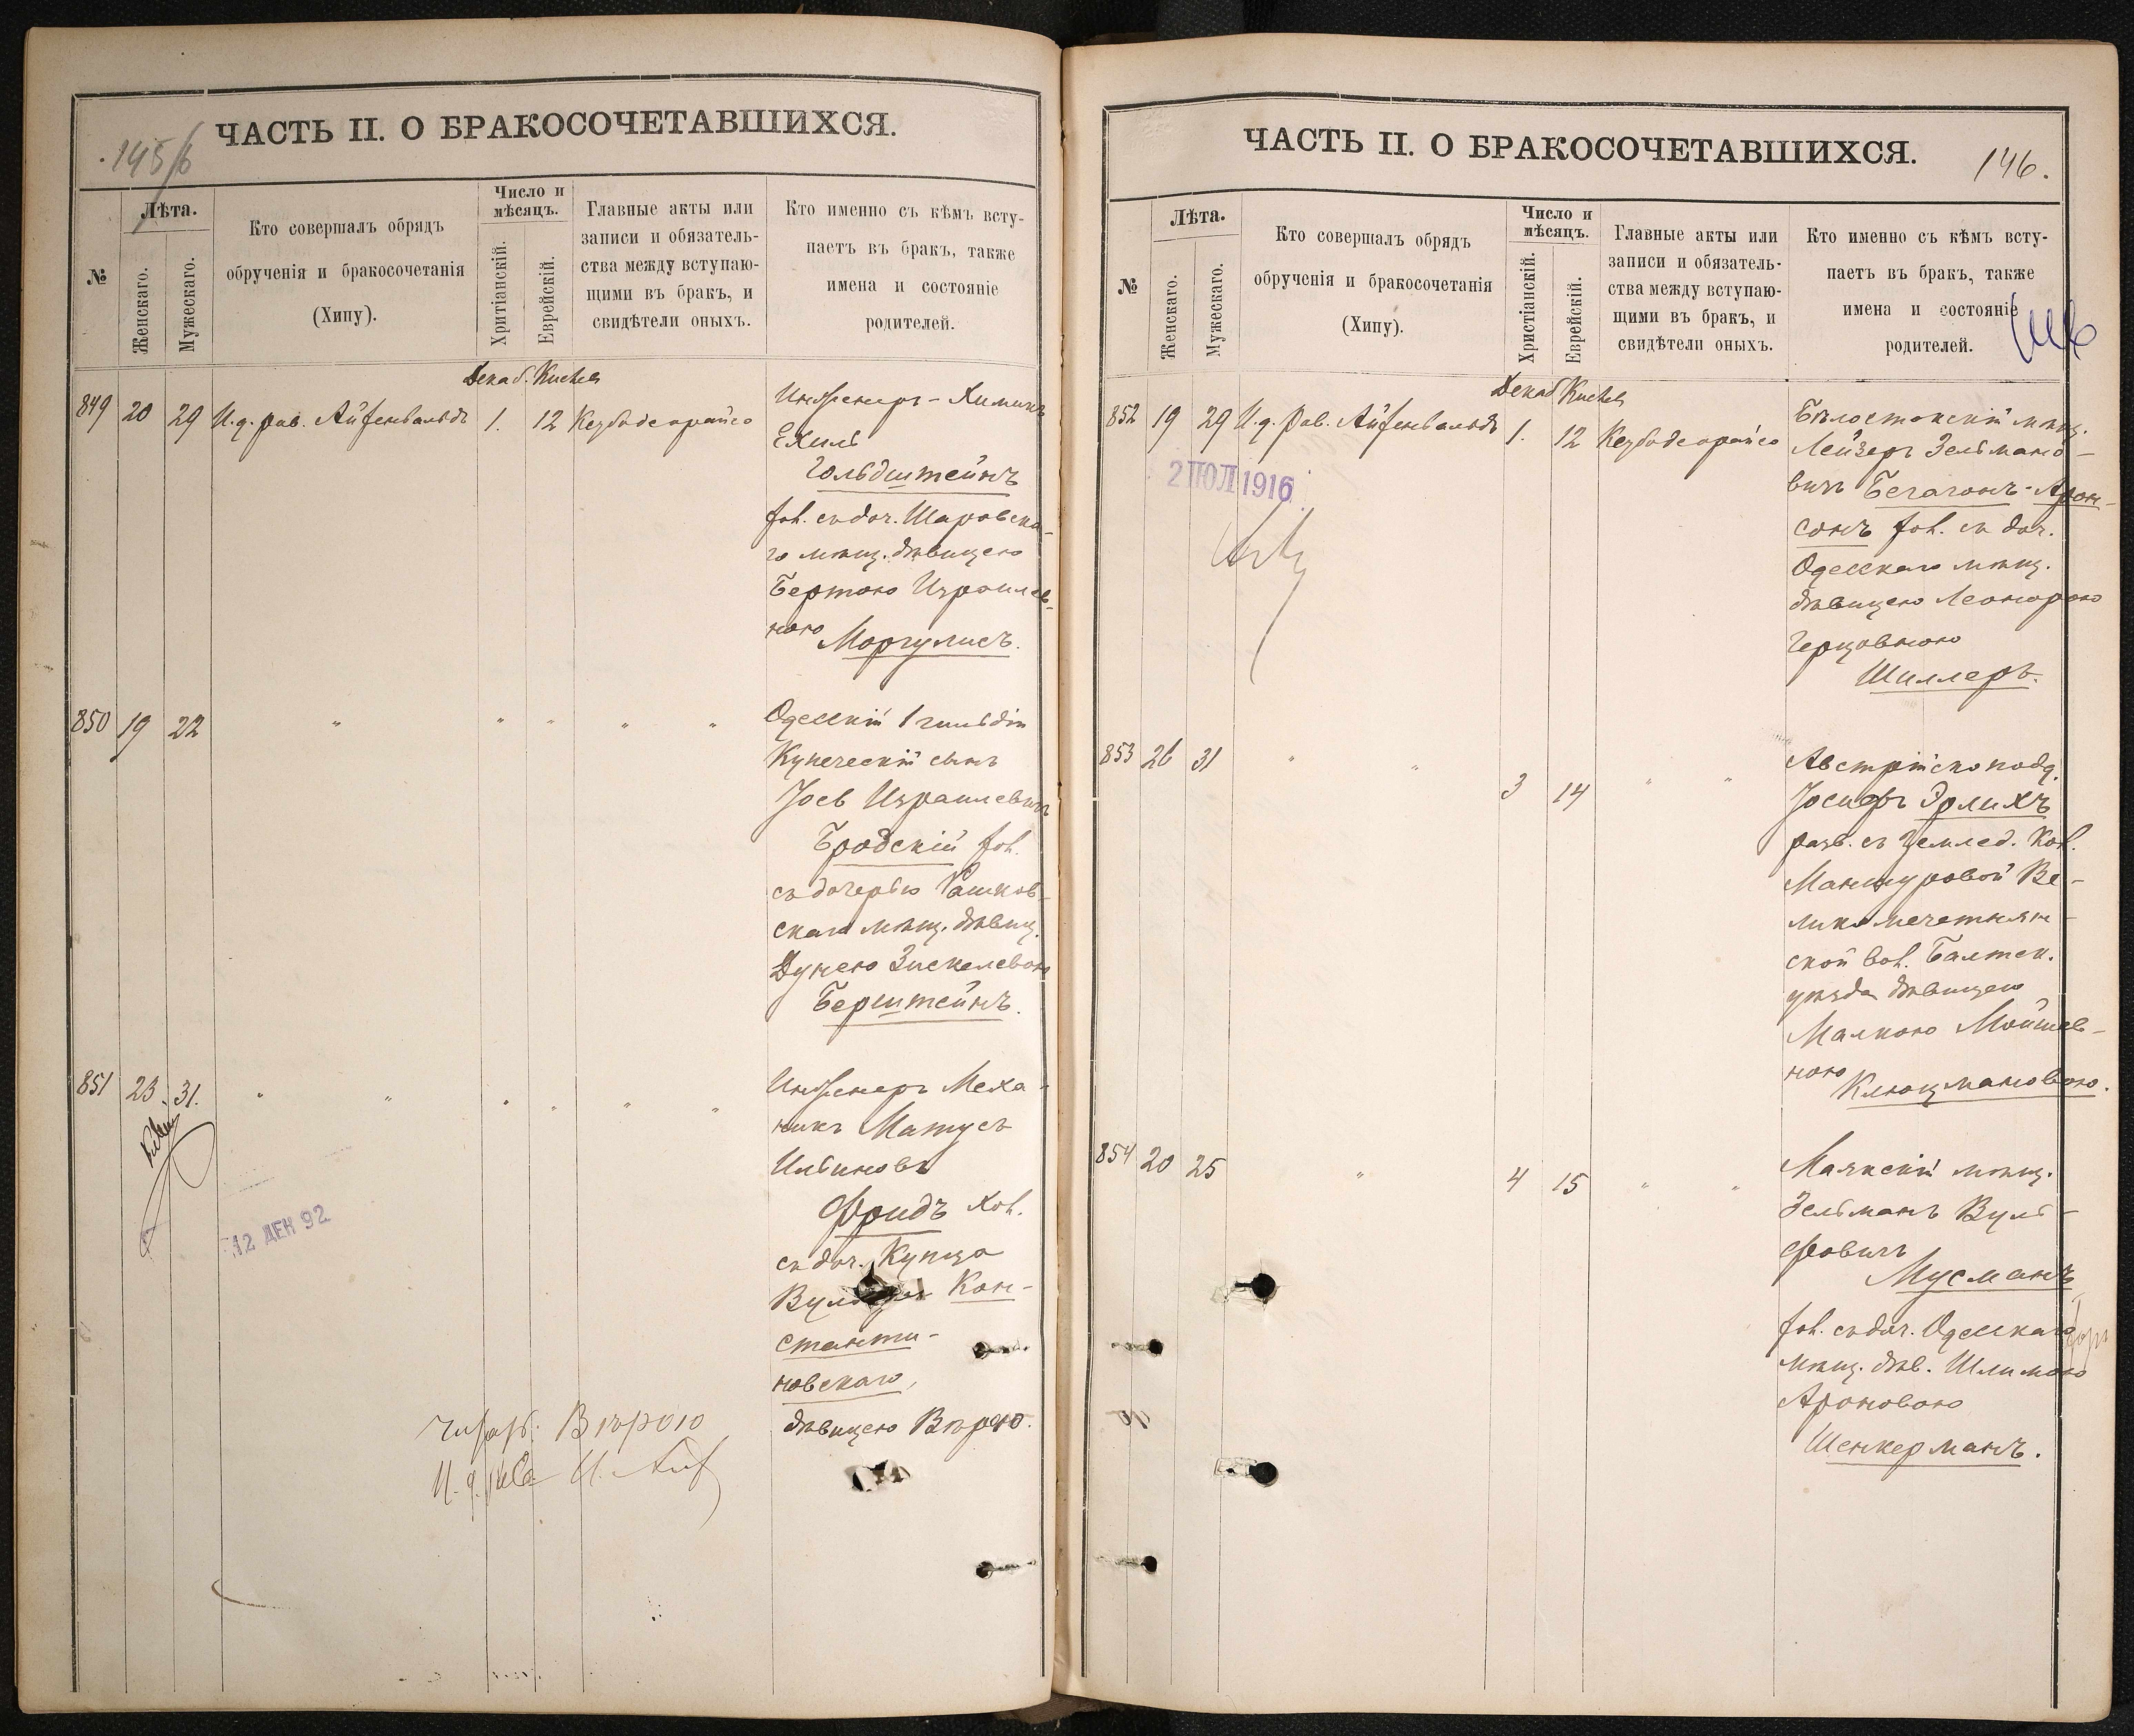 ЧАСТЬ II. О БРАКОСОЧЕТАВШИХСЯ.
145/6
№
Лѣта.
Женскаго.
Мужескаго.
Кто совершалъ обрядъ
обрученія и бракосочетанія
(Хипу).
Число и
мѣсяцъ.
Хритіанскій.
Еврейскій.
Главные акты или
записи и обязатель-
ства между вступаю-
щими въ бракъ, и
свидѣтели оныхъ.
Кто именно съ кѣмъ всту-
паетъ въ бракъ, также
имена и состояніе
родителей.
Декаб. Kuchelo
849 20 29 И.д. рав. Айзенвальдъ 1. 12 Кезубадеорайсо
Инженеръ-Химикъ
Ехиль
Гольдштейнъ
хол. съ доч. Шаровска-
го мѣщ. дѣвицею
Бертою Израилев-
ною Моргулисъ.
850 19 22 " " " " "
Одесскій 1 гильдіи
Купеческій сынъ
Іосъ Израилевичъ
Бродскій хол.
съ дочерью Рашков-
скаго мѣщ. дѣвиц.
Дунею Зискелевою
Берштейнъ.
851 23. 31. " " " " " "
Инженеръ Меха-
никъ Матусъ
Ильиновъ
Фридъ хол.
съ доч. Купца
Кон-
станти-
новскаго,
дѣвицею Вѣрою.
12 ДЕН 92
Вѣрою
И. д. рав.
ЧАСТЬ II. О БРАКОСОЧЕТАВШИХСЯ.
146.
№
Лѣта.
Женскаго.
Мужескаго.
Кто совершалъ обрядъ
обрученія и бракосочетанія
(Хипу).
Число и
мѣсяцъ.
Христіанскій.
Еврейскій.
Главные акты или
записи и обязатель-
ства между вступаю-
щими въ бракъ, и
свидѣтели оныхъ.
Кто именно съ кѣмъ всту-
паетъ въ бракъ, также
имена и состояніе
родителей.
Декаб Kuchelo
852 19 29 И.д. Рав. Айзенвальдъ 1. 12 Кезубадеорайсо
2 ІЮЛ 1916
Бѣлостокскій мѣщ.
Лейзеръ Зельмано-
вичъ Бегагонъ-Арон-
сонъ хол. съ доч.
Одесскаго мѣщ.
дѣвицею Леонорою
Герцовною
Шиллеръ.
853 26 31 " " 3 14 " "
Австрійско подд.
Іосифъ Эрлихъ
разв. съ землед. Кол.
Манжуровой Ве-
ликомечетнян-
ской вол. Балтск.
уѣзда дѣвицею
Малкою Мойшев-
ною Клюцмановою.
854 20 25 " 4 15 " "
Маякскій мѣщ.
Зельманъ Вуль-
фовичъ
Мусманъ
хол. съ доч. Одесскаго
мѣщ. дѣв. Шлимою
Ароновою
Шенкерманъ.